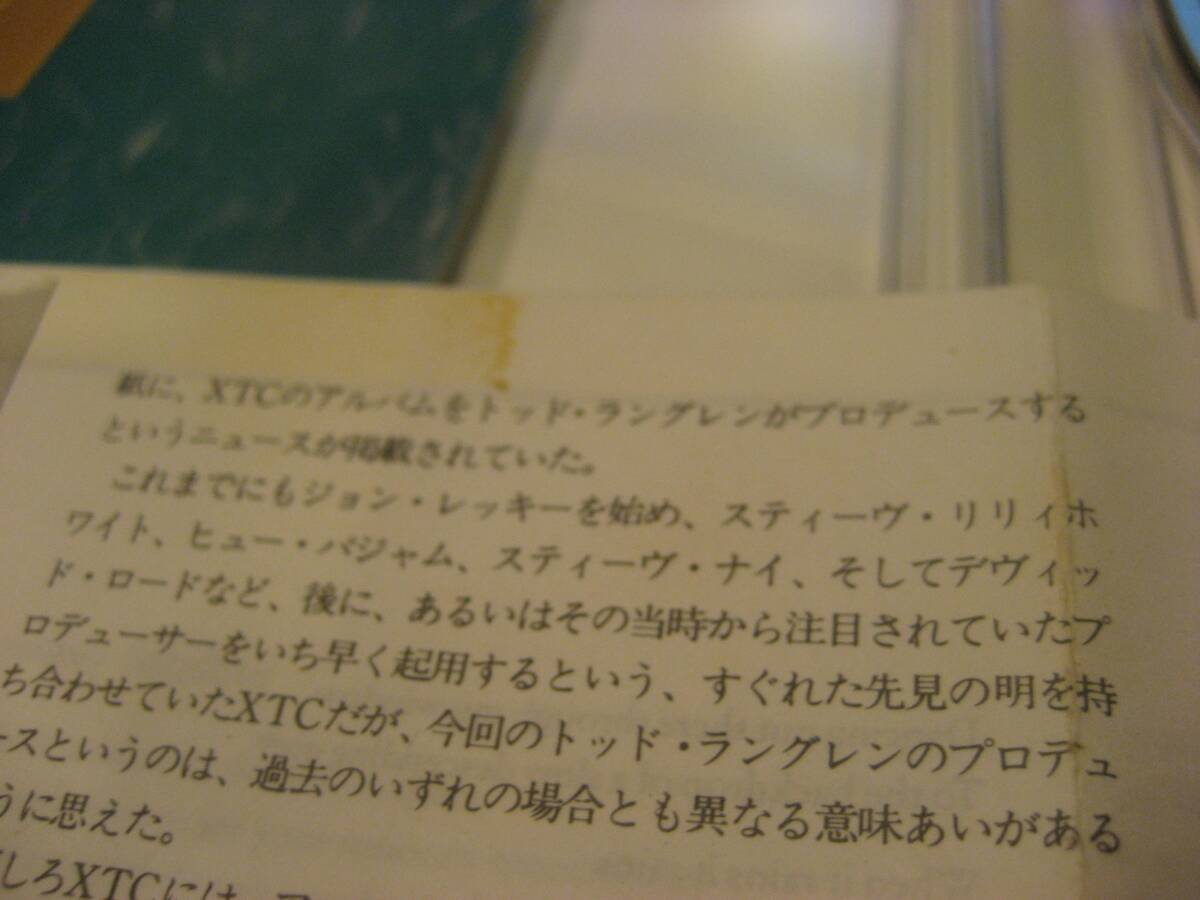 紙に、XTCのアルバムをトッド・ラングレンがプロデュースする
というニュースが掲載されていた。
これまでにもジョン・レッキーを始め、スティーヴ・リリィホ
ワイト、ヒュー・パジャム、スティーヴ・ナイ、そしてデヴィッ
ド・ロードなど、後に、あるいはその当時から注目されていたプ
ロデューサーをいち早く起用するという、すぐれた先見の明を持
ち合わせていたXTCだが、今回のトッド・ラングレンのプロデュ
ースというのは、過去のいずれの場合とも異なる意味あいがある
うに思えた。
しろXTCには、